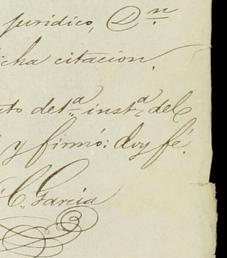 juridico, Dn
cha citacion.
to de 1.ª inst.ª del
y firmó: doy fé.
C. Garcia